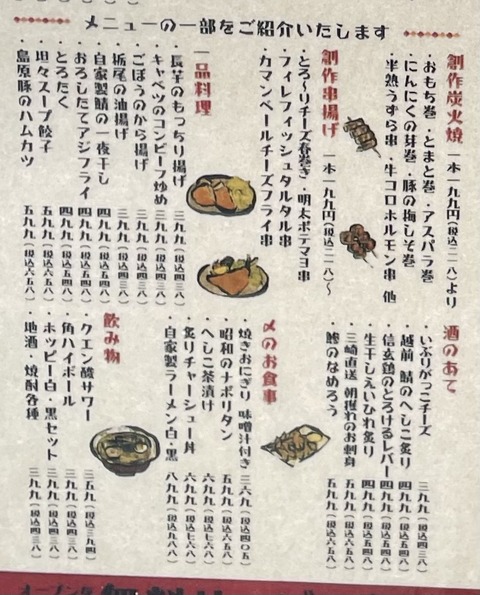 メニューの一部をご紹介いたします
創作炭火焼 一本一九九円(税込二一八)より
・おもち巻 ・とまと巻 ・アスパラ巻
・にんにくの芽巻 ・豚の梅しそ巻
・半熟うずら串 ・牛コロホルモン串 他
創作串揚げ 一本一九九円(税込二一八)〜
・とろ〜りチーズ春巻き ・明太ポテマヨ串
・フィレフィッシュタルタル串
・カマンベールチーズフライ串
一品料理
・長芋のもっちり揚げ 三九九(税込四三八)
・キャベツのコンビーフ炒め 三九九(税込四三八)
・ごぼうのから揚げ 三九九(税込四三八)
・栃尾の油揚げ 三九九(税込四三八)
・自家製鯖の一夜干し 四九九(税込五四八)
・おろしたてアジフライ 四九九(税込五四八)
・とろたく 四九九(税込五四八)
・坦々スープ餃子 四九九(税込五四八)
・島原豚のハムカツ 五九九(税込六五八)
酒のあて
・いぶりがっこチーズ 三九九(税込四三八)
・越前 鯖のへしこ炙り 四九九(税込五四八)
・信玄鶏のとろけるレバー 四九九(税込五四八)
・生干しえいひれ炙り 四九九(税込五四八)
・三崎直送 朝獲れのお刺身 五九九(税込六五八)
・鯵のなめろう 五九九(税込六五八)
〆のお食事
・焼きおにぎり 味噌汁付き 三六九(税込四〇五)
・昭和のナポリタン 五九九(税込六五八)
・へしこ茶漬け 六九九(税込七六八)
・炙りチャーシュー丼 六九九(税込七六八)
・自家製ラーメン白・黒 八九九(税込九八八)
飲み物
・クエン酸サワー 三五九(税込三九四)
・角ハイボール 三九九(税込四三八)
・ホッピー白・黒セット 三九九(税込四三八)
・地酒・焼酎各種 三九九(税込四三八)